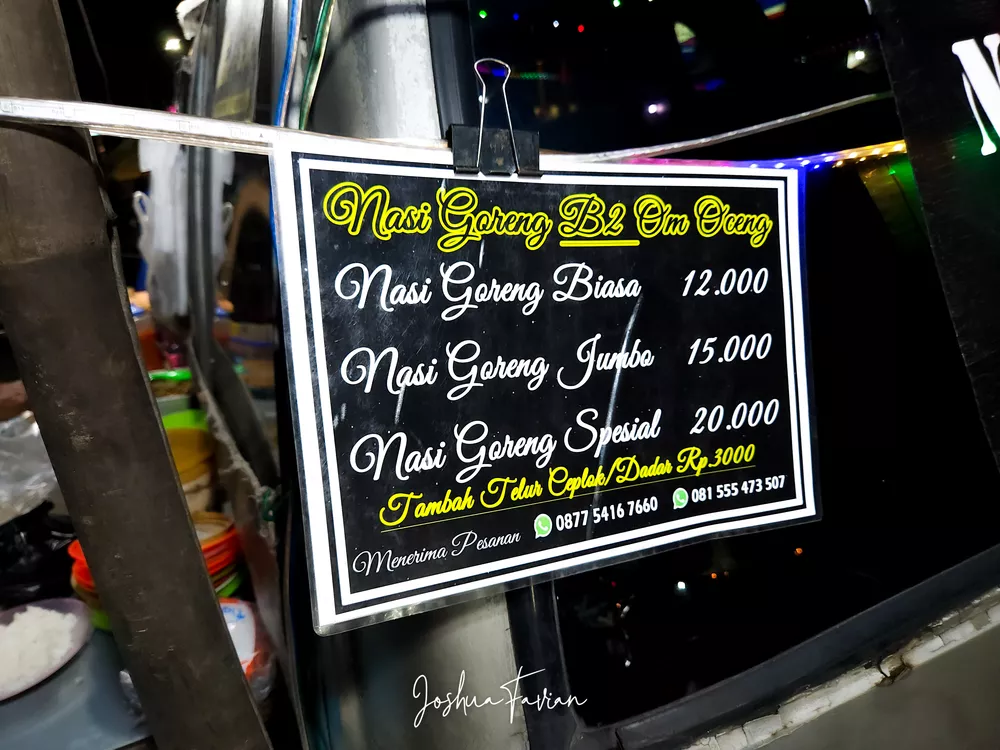 Nasi Goreng B2 Om Oceng
Nasi Goreng Biasa 12.000
Nasi Goreng Jumbo 15.000
Nasi Goreng Spesial 20.000
Tambah Telur Ceplok/Dadar Rp.3000
Menerima Pesanan 0877 5416 7660 081 555 473 507
Joshua Favian